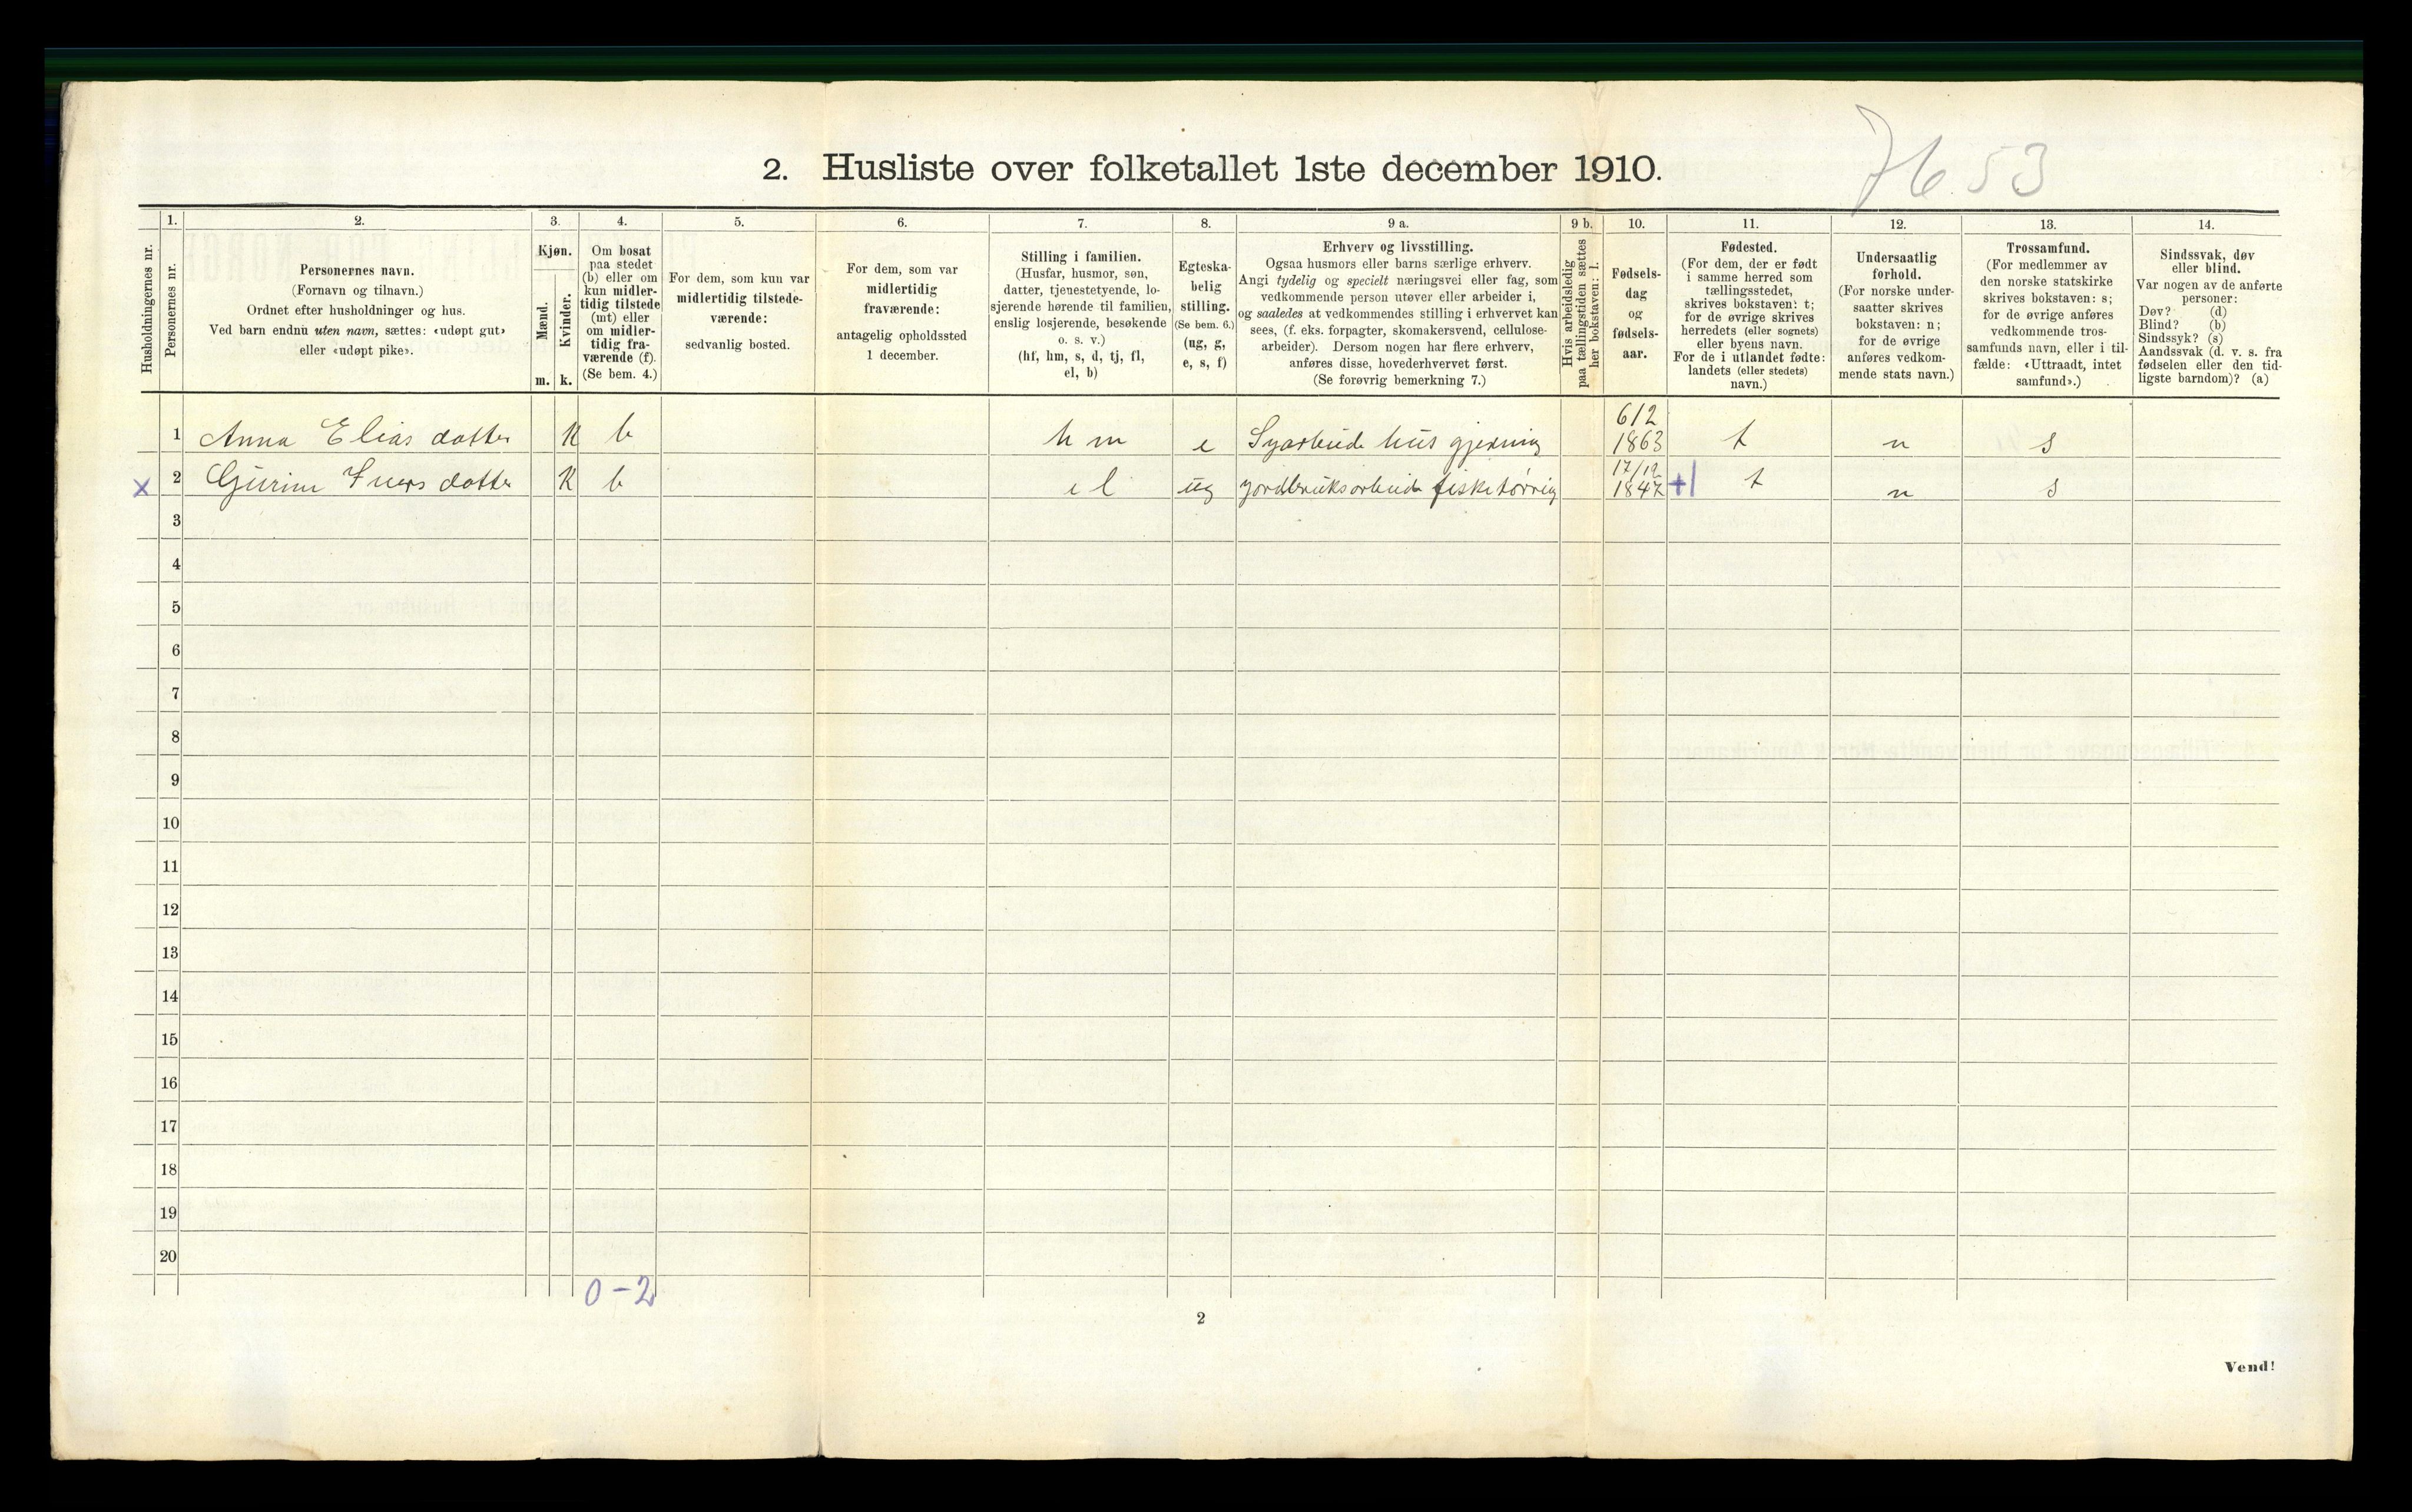 7653
2. Husliste over folketallet 1ste december 1910.
Husholdningernes nr.
1.
Personernes nr.
2.
Personernes navn.
(Fornavn og tilnavn.)
Ordnet efter husholdninger og hus.
Ved barn endnu uten navn, sættes: «udøpt gut»
eller «udøpt pike».
3.
Kjøn.
Mænd.
Kvinder.
m. k.
4.
Om bosat
paa stedet
(b) eller om
kun midler-
tidig tilstede
(mt) eller
om midler-
tidig fra-
værende (f).
(Se bem. 4.)
5.
For dem, som kun var
midlertidig tilstede-
værende:
sedvanlig bosted.
6.
For dem, som var
midlertidig
fraværende:
antagelig opholdssted
1 december.
7.
Stilling i familien.
(Husfar, husmor, søn,
datter, tjenestetyende, lo-
sjerende hørende til familien,
enslig losjerende, besøkende
o. s. v.)
(hf, hm, s, d, tj, fl,
el, b)
8.
Egteska-
belig
stilling.
(Se bem. 6.)
(ug, g,
e, s, f)
9 a.
Erhverv og livsstilling.
Ogsaa husmors eller barns særlige erhverv.
Angi tydelig og specielt næringsvei eller fag, som
vedkommende person utøver eller arbeider i,
og saaledes at vedkommendes stilling i erhvervet kan
sees, (f. eks. forpagter, skomakersvend, cellulose-
arbeider). Dersom nogen har flere erhverv,
anføres disse, hovederhvervet først.
(Se forøvrig bemerkning 7.)
9 b.
Hvis arbeidsledig
paa tællingstiden sættes
her bokstaven: l.
10.
Fødsels-
dag
og
fødsels-
aar.
11.
Fødested.
(For dem, der er født
i samme herred som
tællingsstedet,
skrives bokstaven: t;
for de øvrige skrives
herredets (eller sognets)
eller byens navn.
For de i utlandet fødte:
landets (eller stedets)
navn.)
12.
Undersaatlig
forhold.
(For norske under-
saatter skrives
bokstaven: n;
for de øvrige
anføres vedkom-
mende stats navn.)
13.
Trossamfund.
(For medlemmer av
den norske statskirke
skrives bokstaven: s;
for de øvrige anføres
vedkommende tros-
samfunds navn, eller i til-
fælde: «Uttraadt, intet
samfund».)
14.
Sindssvak, døv
eller blind.
Var nogen av de anførte
personer:
Døv? (d)
Blind? (b)
Sindssyk? (s)
Aandssvak (d. v. s. fra
fødselen eller den tid-
ligste barndom)? (a)
1 Anna Elias datter K b h m e Syarbeide hus gjerning 6/2 1863 t n s
x 2 Gurine Ivers datter K b e l ug jordbruksarbeide fisketørrig 17/12 1847 +1 t n s
3
4
5
6
7
8
9
10
11
12
13
14
15
16
17
18
19
20
0-2
2
Vend!